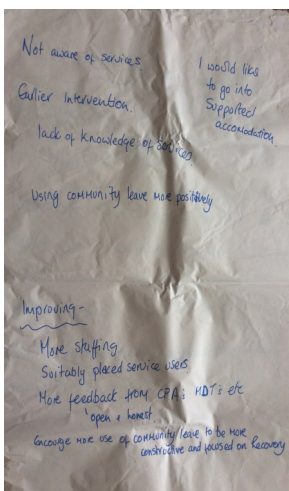 Not aware of services
I would like
to go into
Supported
accomodation
Earlier Intervention.
lack of knowledge of services
Using community leave more positively
Improving -
More staffing
Suitably placed service users
More feedback from CPA's MDT's etc
open & honest
Encourage more use of community leave to be more
constructive and focused on Recovery